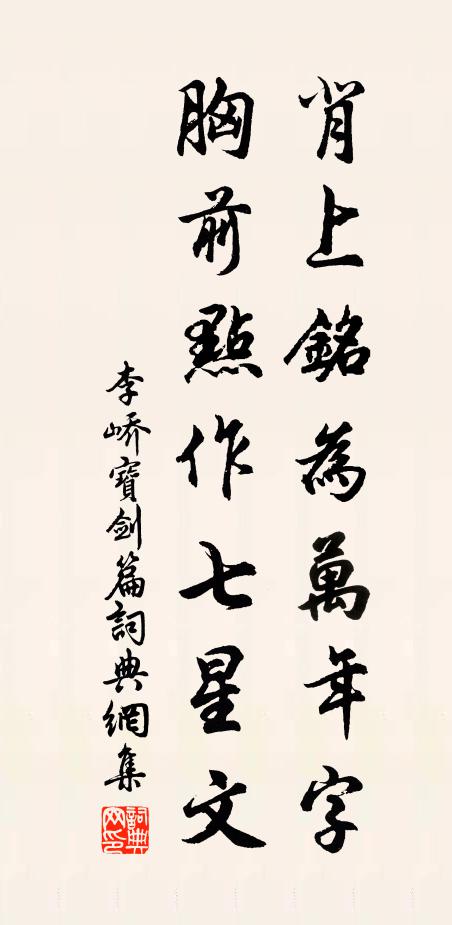 背上銘為萬年字
胸前點作七星文
李嶠寶劍篇詞典網集
詞典
網印